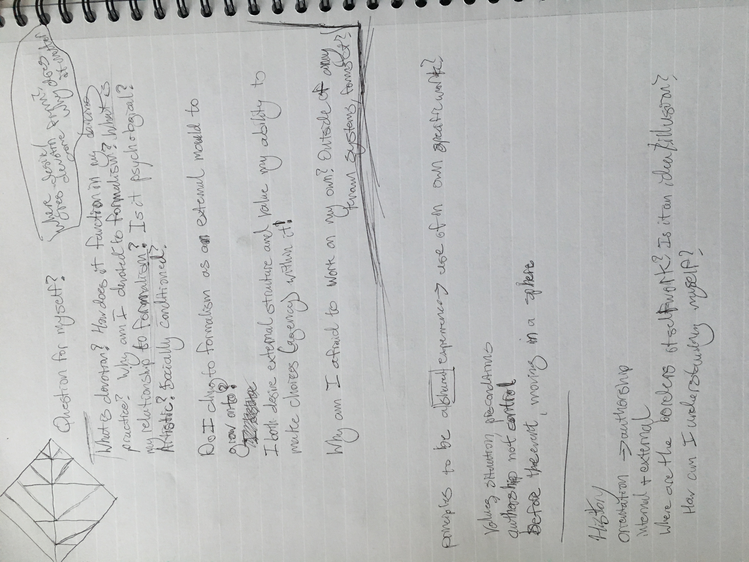 Question for myself?
Where does devotion
What is devotion? How does it function in my
practice? Why am I devoted to formalism? What is
my relationship to formalism? Is it psychological?
Artistic? Socially conditioned?
Do I cling to formalism as an external mould to
grow onto?
I both desire external structure and value my ability to
make choices (agency) within it!
Why am I afraid to work on my own? Outside of any
systems, formats?
principles to be experience → use of in own specific work?
Values, situation, preconditions
authorship not control
Before the event, moving in a sphere
History
orientation → authorship
internal + external
Where are the borders of self/work? Is it an idea/illusion?
How am I understanding myself?